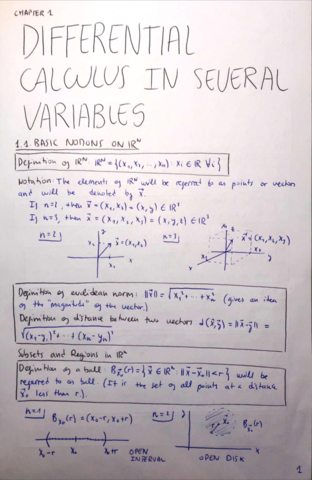 CHAPTER 1
DIFFERENTIAL
CALCULUS IN SEVERAL
VARIABLES
1.1 BASIC NOTIONS ON ℝᴺ
Definition of ℝᴺ ℝᴺ = {(x₁, x₂, ..., xₙ) : xᵢ ∈ ℝ ∀i}
Notation: The elements of ℝᴺ will be referred to as points or vectors
and will be denoted by x⃗.
If n=2, then x⃗ = (x₁, x₂) = (x, y) ∈ ℝ²
If n=3, then x⃗ = (x₁, x₂, x₃) = (x, y, z) ∈ ℝ³
n=2 x₂ x⃗=(x₁,x₂) x₁
n=3 x⃗=(x₁,x₂,x₃) y x
Definition of euclidean norm: ||x⃗|| = √x₁² + ... + xₙ² (gives an idea
of the "magnitude" of the vector.)
Definition of distance between two vectors d(x⃗,y⃗) = ||x⃗-y⃗|| =
√(x₁-y₁)² + ... + (xₙ-yₙ)²
Subsets and Regions in ℝᴺ
Definition of a ball: B_x⃗₀(r) = {x⃗ ∈ ℝᴺ ||x⃗-x⃗₀|| < r} will be
referred to as ball. (It is the set of all points at a distance
x⃗₀ less than r.)
n=1 B_x₀(r) = (x₀-r, x₀+r)
x₀-r x₀ x₀+r
OPEN
INTERVAL
n=2 y B_x⃗₀(r) x
OPEN DISK
1